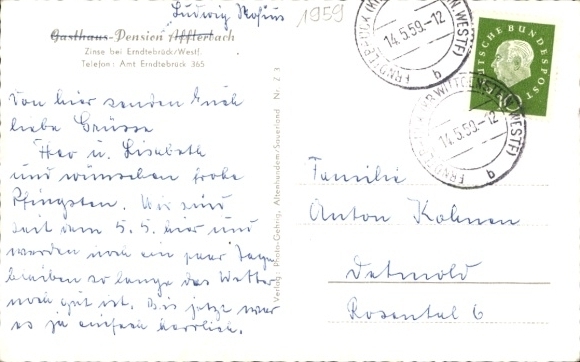 Ludwig
1959
Gasthaus-Pension Afflerbach
Zinse bei Erndtebrück/Westf.
Telefon: Amt Erndtebrück 365
Von hier senden Euch
liebe Grüsse
u. Lisabeth
und wünschen frohe
Pfingsten. Wir sind
seit dem 5.5. hier und
werden noch ein paar Tage
bleiben so lange das Wetter
noch gut ist. Bis jetzt war
es ja einfach herrlich.
Verlag: Photo-Gehring, Altenhundem/Sauerland Nr. 23
14.5.59.-12
b
WITTGENSTEIN, WESTF)
14.5.59.-12
b
DEUTSCHE BUNDESPOST
Familie
Anton Kohnen
Detmold
Rosental 6